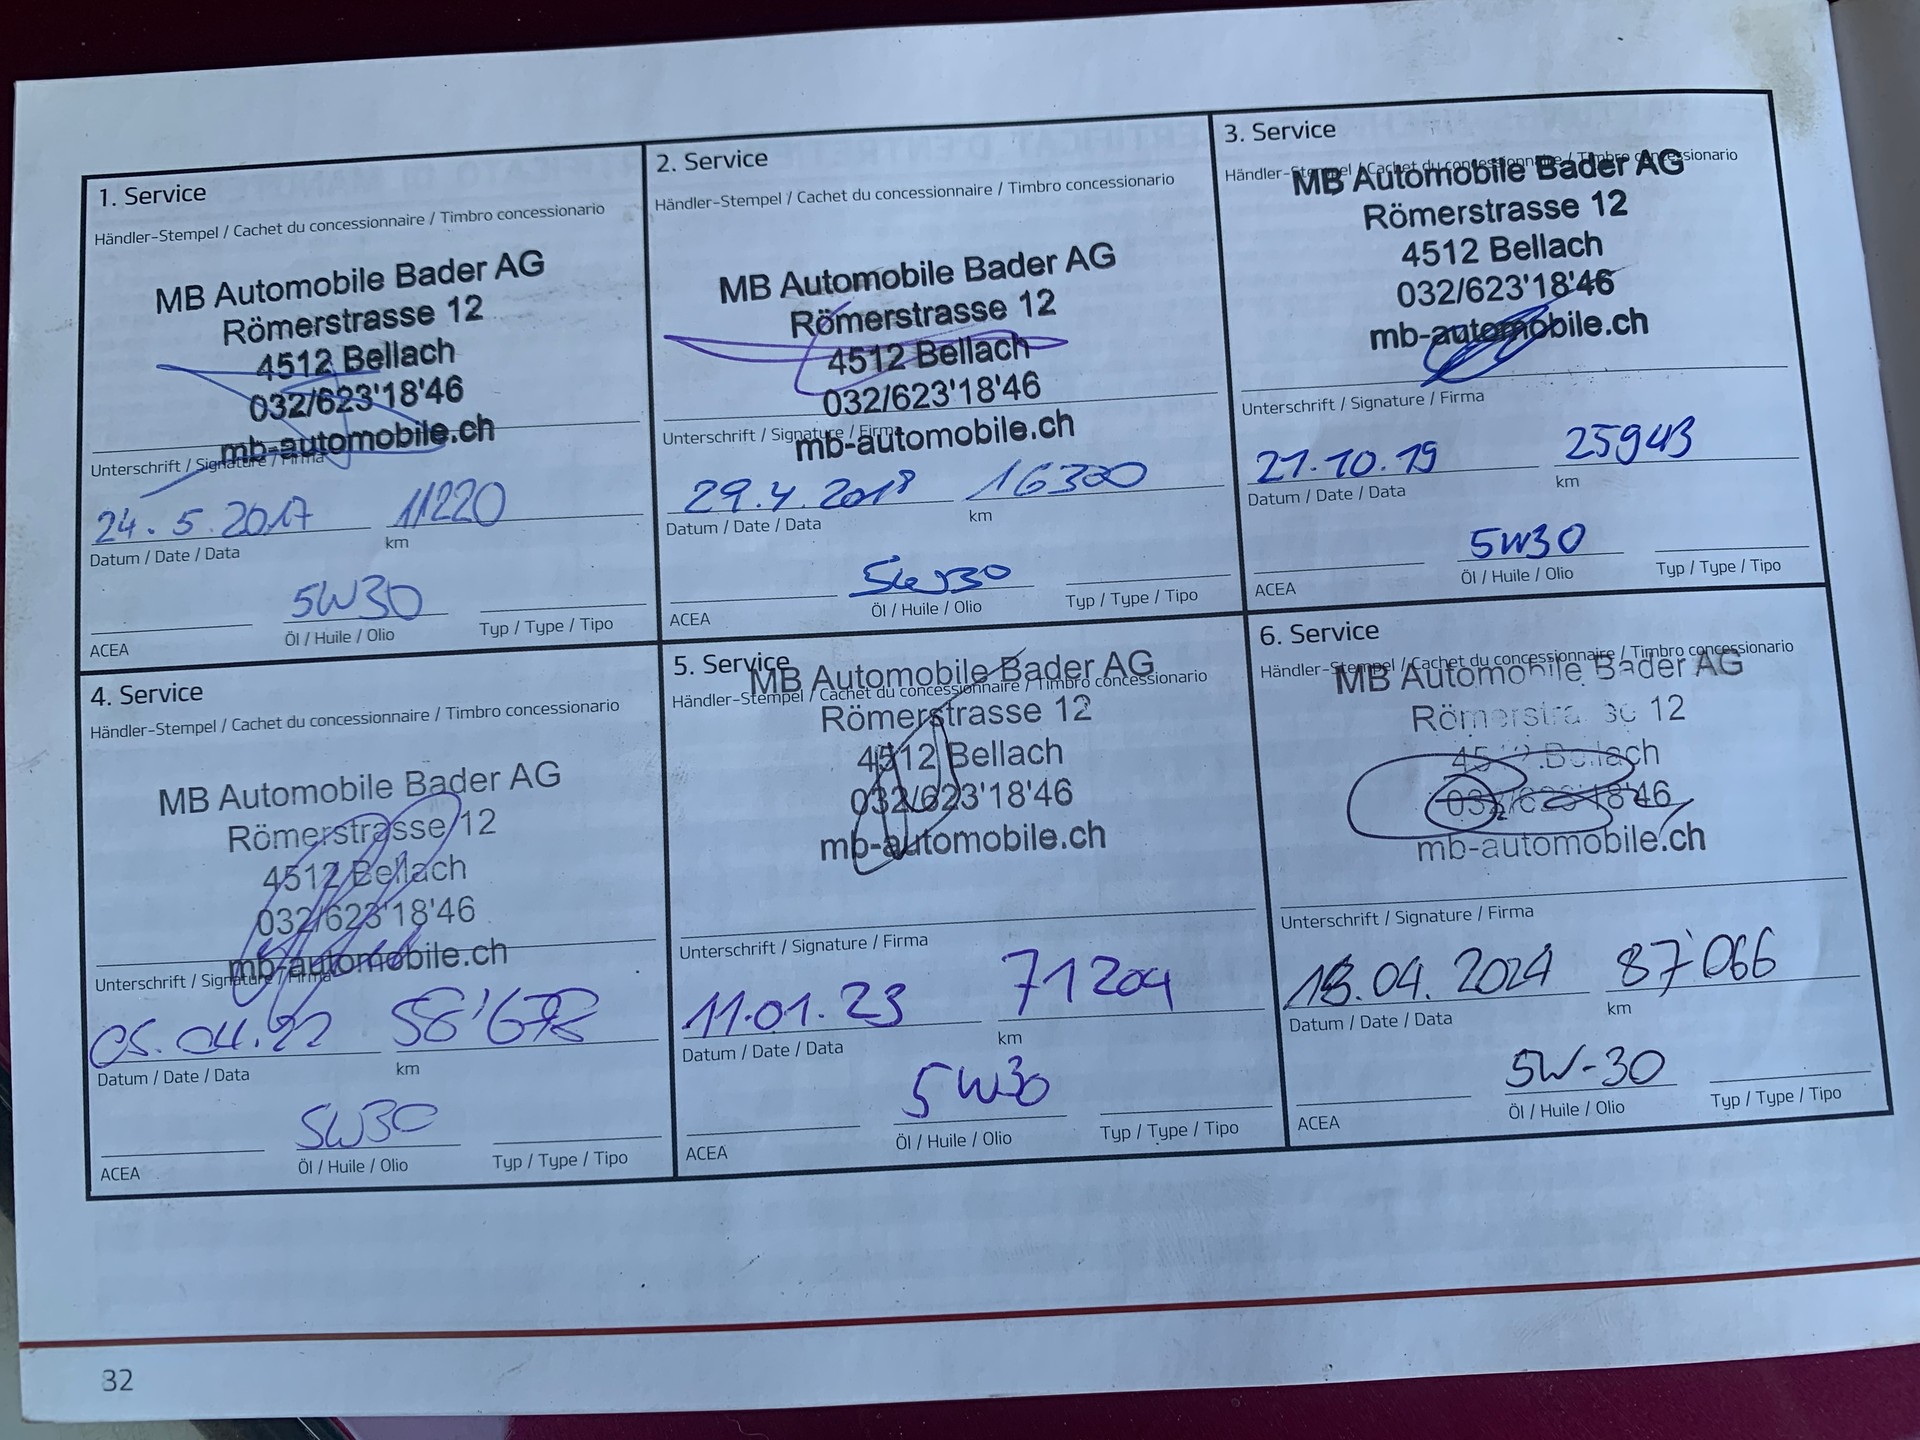 1. Service
Händler-Stempel / Cachet du concessionnaire / Timbro concessionario
MB Automobile Bader AG
Römerstrasse 12
4512 Bellach
032/623'18'46
mb-automobile.ch
Unterschrift / Signature / Firma
24.5.2017 11220
Datum / Date / Data km
5W30
ACEA Öl / Huile / Olio Typ / Type / Tipo
2. Service
Händler-Stempel / Cachet du concessionnaire / Timbro concessionario
MB Automobile Bader AG
Römerstrasse 12
4512 Bellach
032/623'18'46
mb-automobile.ch
Unterschrift / Signature / Firma
29.4.2018 16300
Datum / Date / Data km
5W30
ACEA Öl / Huile / Olio Typ / Type / Tipo
3. Service
Händler-Stempel / Cachet du concessionnaire / Timbro concessionario
MB Automobile Bader AG
Römerstrasse 12
4512 Bellach
032/623'18'46
mb-automobile.ch
Unterschrift / Signature / Firma
21.10.19 25943
Datum / Date / Data km
5W30
ACEA Öl / Huile / Olio Typ / Type / Tipo
4. Service
Händler-Stempel / Cachet du concessionnaire / Timbro concessionario
MB Automobile Bader AG
Römerstrasse 12
4512 Bellach
032/623'18'46
mb-automobile.ch
Unterschrift / Signature / Firma
05.04.22 58'678
Datum / Date / Data km
5W30
ACEA Öl / Huile / Olio Typ / Type / Tipo
5. Service
Händler-Stempel / Cachet du concessionnaire / Timbro concessionario
MB Automobile Bader AG
Römerstrasse 12
4512 Bellach
032/623'18'46
mb-automobile.ch
Unterschrift / Signature / Firma
11.01.23 71204
Datum / Date / Data km
5W30
ACEA Öl / Huile / Olio Typ / Type / Tipo
6. Service
Händler-Stempel / Cachet du concessionnaire / Timbro concessionario
MB Automobile Bader AG
Römerstrasse 12
4512 Bellach
032/623'18'46
mb-automobile.ch
Unterschrift / Signature / Firma
18.04.2024 87'066
Datum / Date / Data km
5W-30
ACEA Öl / Huile / Olio Typ / Type / Tipo
32